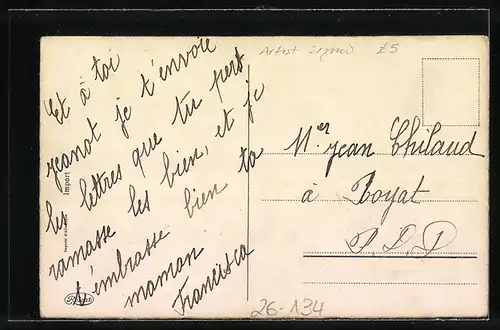 Artist signed £5
Et à toi
Jeanot je t'envoie
les lettres que tu perd
ramasse les bien, et je
t'embrasse bien ta
maman
Francisca
Mer Jean Chilaud
à Royat
P. D. D
Import
26-134